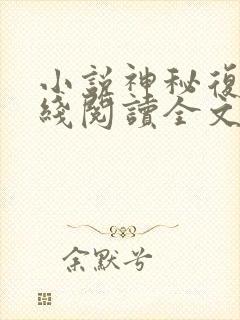 小說神秘復
綫閱讀全文
余默兮